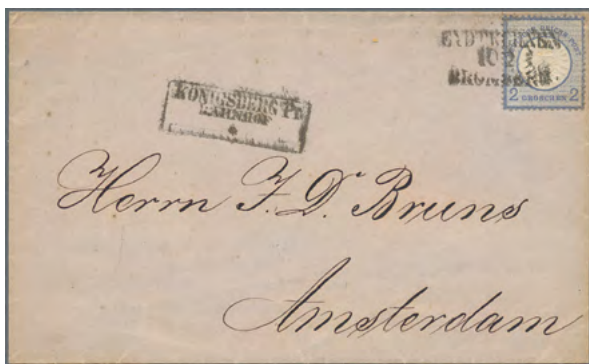 EYDTKUHNEN
10 2
BROMBERG
2 GROSCHEN 2
KÖNIGSBERG Pr.
BAHNHOF
Herrn F. D. Bruns
Amsterdam